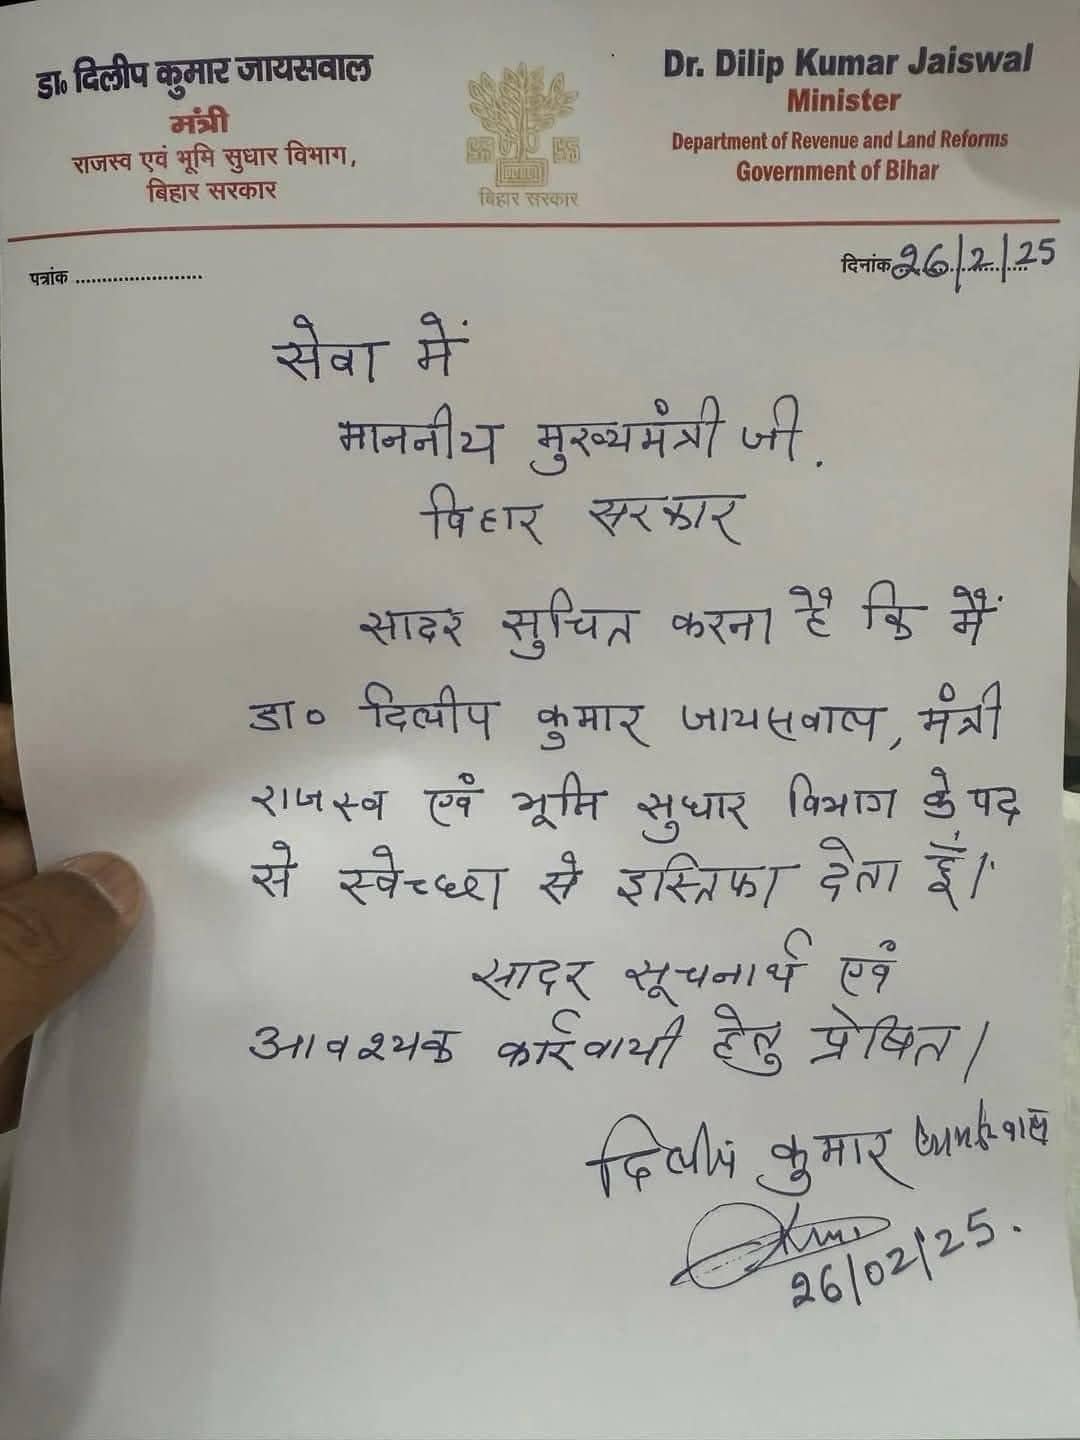 डा० दिलीप कुमार जायसवाल
मंत्री
राजस्व एवं भूमि सुधार विभाग,
बिहार सरकार
बिहार सरकार
Dr. Dilip Kumar Jaiswal
Minister
Department of Revenue and Land Reforms
Government of Bihar
पत्रांक ......................
दिनांक 26/2/25
सेवा में
माननीय मुख्यमंत्री जी.
बिहार सरकार
सादर सुचित करना है कि मैं
डा० दिलीप कुमार जायसवाल, मंत्री
राजस्व एवं भूमि सुधार विभाग के पद
से स्वेच्छा से इस्तिफा देता हूँ।
सादर सूचनार्थ एवं
आवश्यक कार्रवायी हेतु प्रेषित।
दिलीप कुमार जायसवाल
26/02/25.